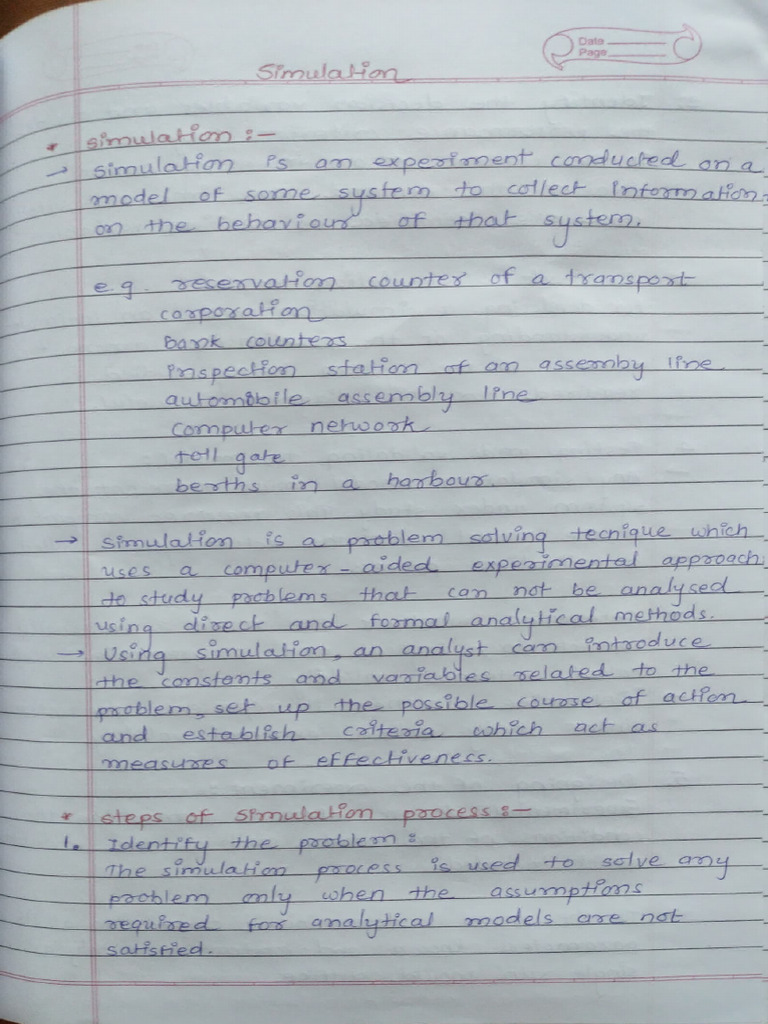 Date
Page
Simulation
* simulation :-
→ simulation is an experiment conducted on a
model of some system to collect information
on the behaviour of that system.
e.g. reservation counter of a transport
corporation
Bank counters
inspection station of an assemby line
automobile assembly line
computer network
toll gate
berths in a harbour.
→ simulation is a problem solving tecnique which
uses a computer-aided experimental approach
to study problems that can not be analysed
using direct and formal analytical methods.
→ Using simulation, an analyst can introduce
the constents and variables related to the
problem, set up the possible course of action
and establish criteria which act as
measures of effectiveness.
* steps of simulation process :-
1. Identify the problem :
The simulation process is used to solve any
problem only when the assumptions
required for analytical models are not
satisfied.